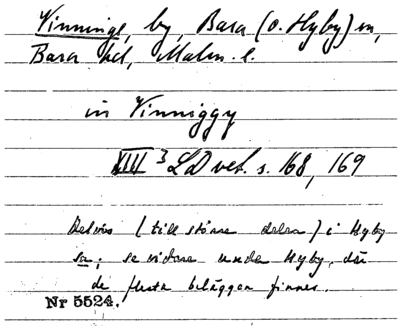 Vinninge, by, Bara (o. Hyby) sn,
Bara hd, Malm. l.
in Vinniggy
XIII 3 LD vet. s. 168, 169
Delvis (till större delen) i Hyby
sn; se vidare under Hyby, där
de flesta beläggen finnes.
Nr 5524.